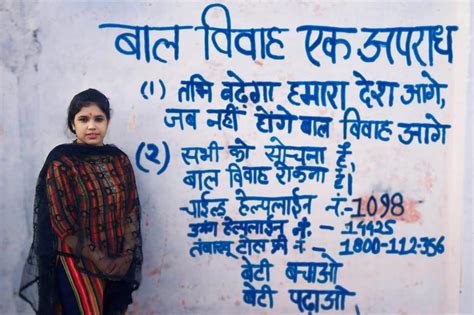 बाल विवाह एक अपराध
(1) तभि बढेगा हमारा देश आगे,
जब नहीं होगे बाल विवाह आगे
(2) सभी को सूंचना है,
बाल विवाह रोकना है।
चाईल्ड हेल्पलाईन नं:- 1098
हेल्पलाईन नं. - 14425
तंबाखू टोल फ्री नं - 1800-112-356
बेटी बचाओ
बेटी पढ़ाओ